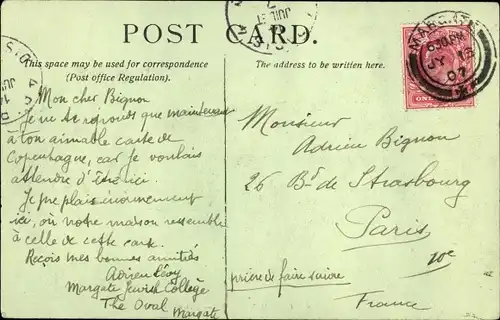 POST CARD.
This space may be used for correspondence
(Post office Regulation).
The address to be written here.
MARGATE
6 30 PM
JY 13
07
ONE
Mon cher Bignon
Je ne te réponds que maintenant
à ton aimable carte de
Copenhague, car je voulais
attendre d'être ici.
Je me plais énormément
ici, où notre maison ressemble
à celle de cette carte.
Reçois mes bonnes amitiés
Adrien Lévy
Margate Jewish College
The Oval
Margate
Monsieur
Adrien Bignon
26 Bd de Strasbourg
Paris
10e
prière de faire suivre
France